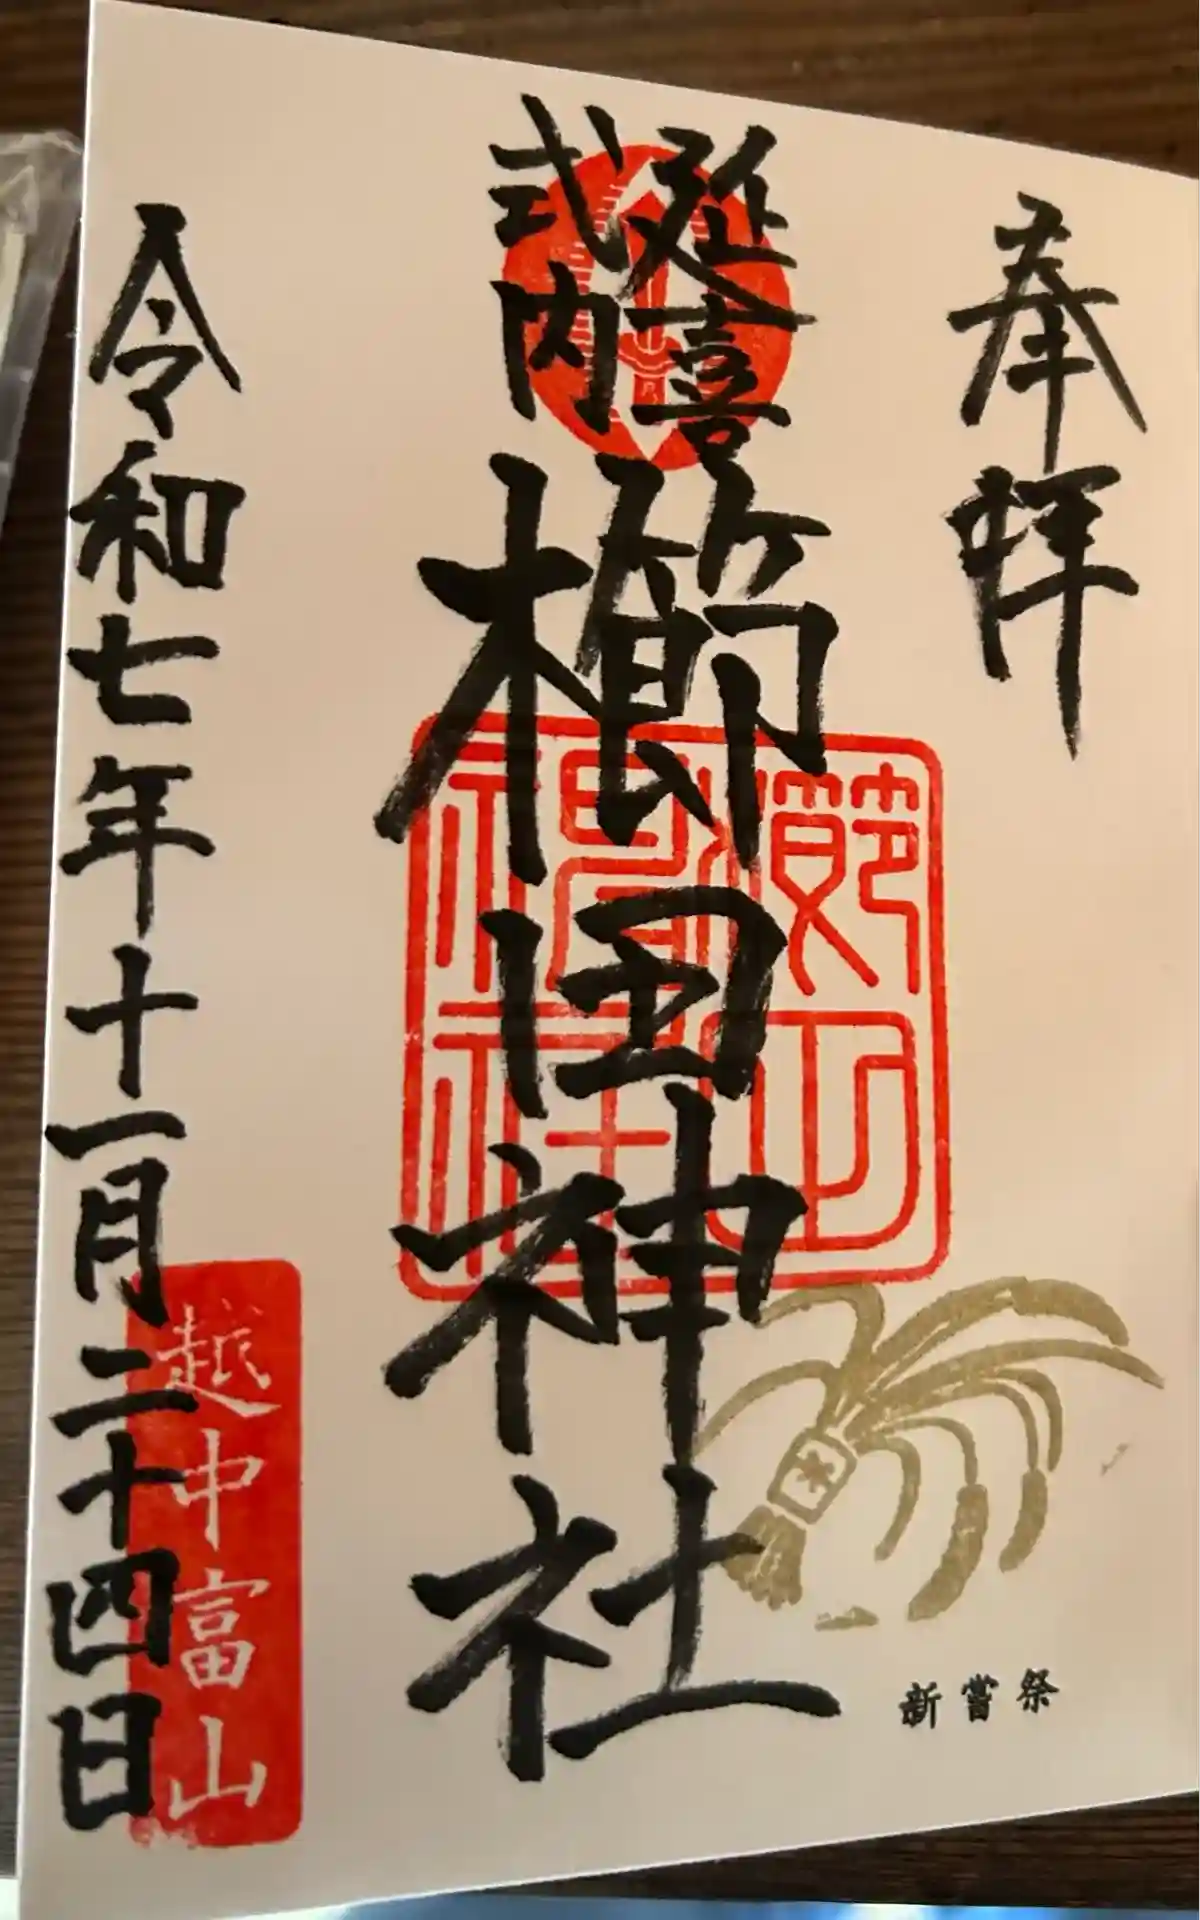 奉拝
延喜
式内
櫛田神社
櫛田
神社
新嘗祭
令和七年十一月二十四日
越中富山